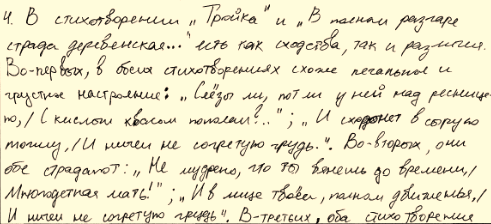 4. В стихотворении „Тройка" и „В полном разгаре
страда деревенская..." есть как сходства, так и различия.
Во-первых, в обоих стихотворениях схоже печальное и
грустное настроение: „Слёзы ли, пот ли у ней над реснице-
ю,/ С кислым квасом пополам!.."; „И схоронят в сырую
могилу,/ И ничем не согретую грудь.". Во-вторых, они
обе страдают: „Не мудрено, что ты вянешь до времени,/
Многодетная мать!"; „И в лице твоем, полном движенья,/
И ничем не согретую грудь". В-третьих, оба стихотворения